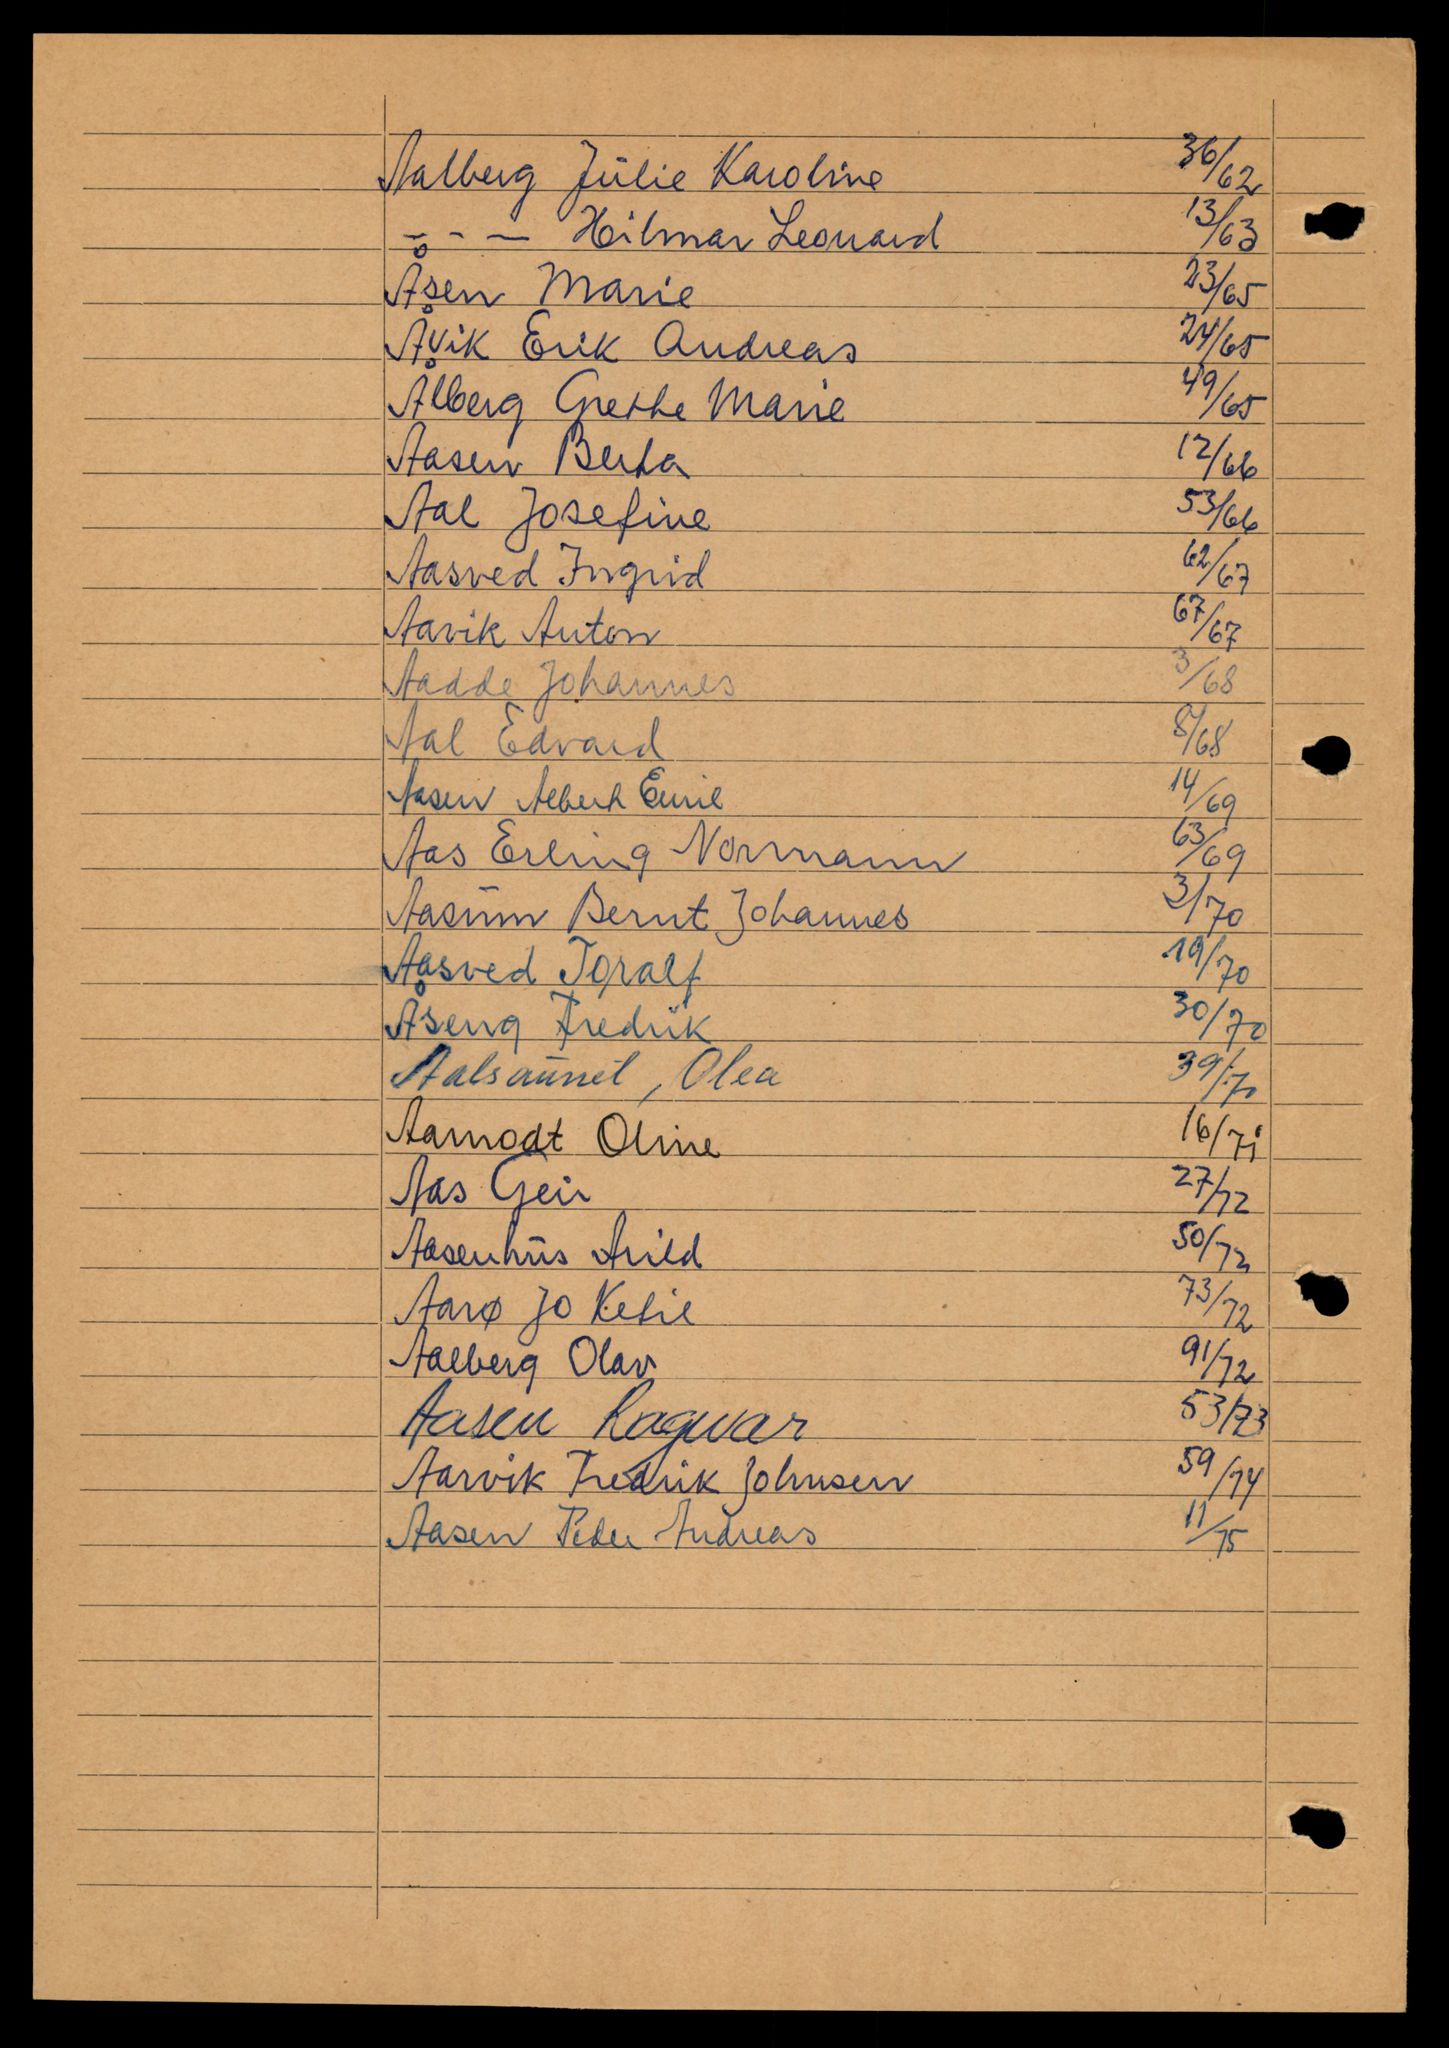 Aalberg Julie Karoline 36/62
- - - Hilmar Leonard 13/63
Åsen Marie 23/65
Åvik Erik Andreas 24/65
Ålberg Grethe Marie 49/65
Aasen Berta 12/66
Aal Josefine 53/66
Aasved Ingrid 62/67
Aavik Anton 67/67
Aadde Johannes 3/68
Aal Edvard 8/68
Aasen Albert Emil 14/69
Aas Erling Normann 63/69
Aasum Bernt Johannes 3/70
Aasved Toralf 19/70
Åseng Fredrik 30/70
Aalsaunet, Olea 39/70
Aamodt Oline 16/71
Aas Geir 27/72
Aasenhus Arild 50/72
Aarø Jo Ketil 73/72
Aalberg Olav 91/72
Aasen Ragnar 53/73
Aarvik Fredrik Johnsen 59/74
Aasen Peder Andreas 11/75